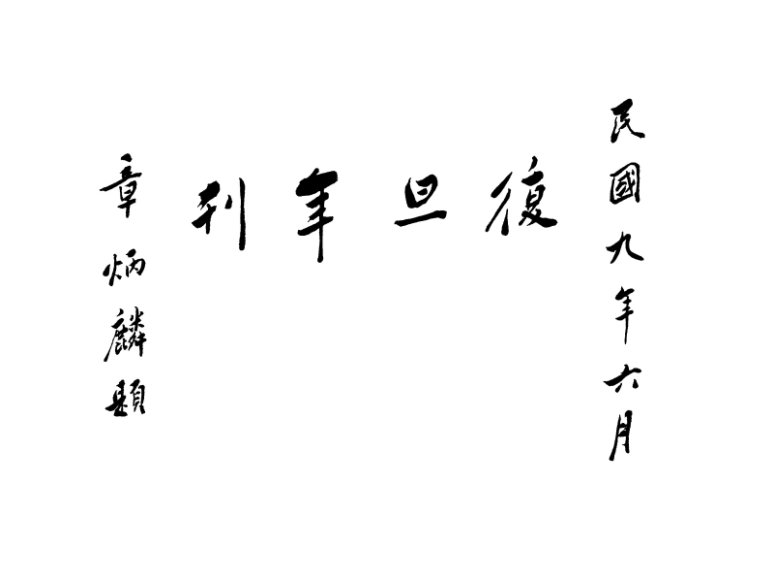 民國九年六月
復旦年刊
章炳麟題